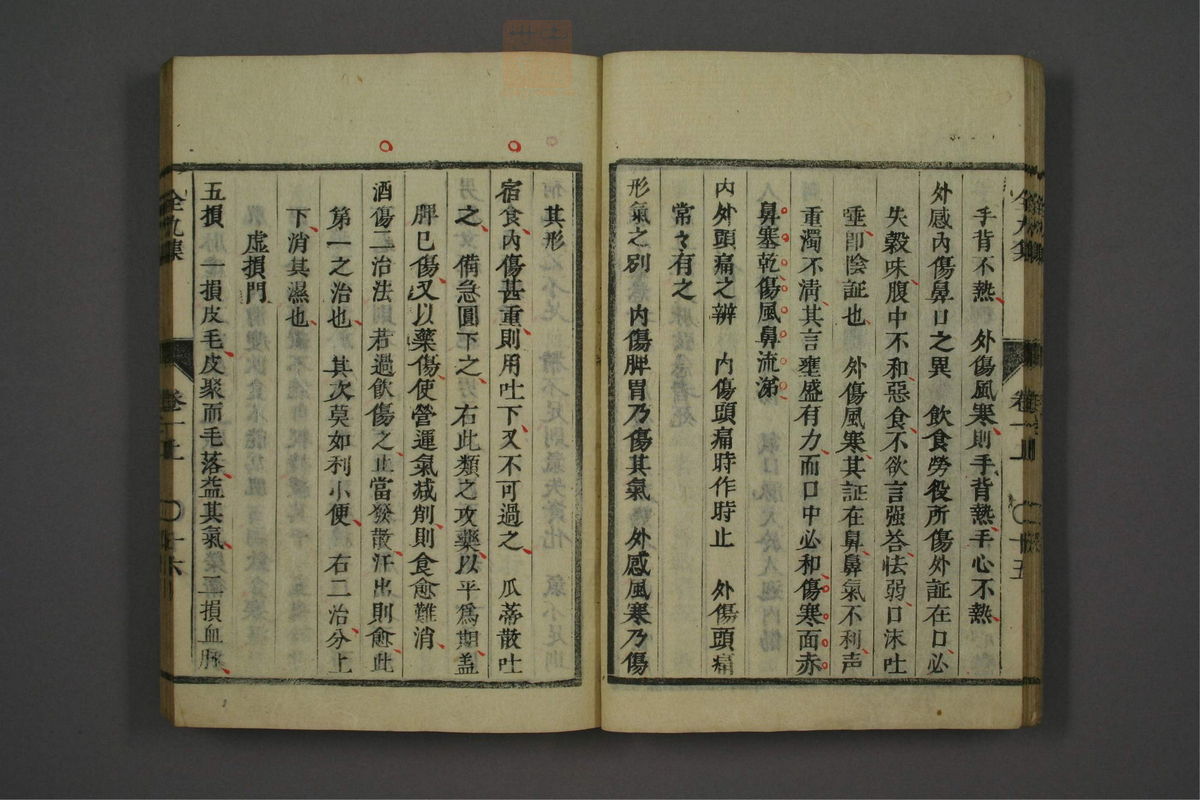 手背不熱　外傷風寒則手背熱手心不熱
外感內傷鼻口之異　飲食勞役所傷外証在口必
失穀味腹中不和惡食不欲言强答怯弱口沫吐
唾卽陰証也　外傷風寒其証在鼻鼻氣不利声
重濁不清其言壅盛有力而口中必和傷寒面赤
鼻塞乾傷風鼻流涕
內外頭痛之辨　內傷頭痛時作時止　外傷頭痛
常々有之
形氣之別　內傷脾胃乃傷其氣　外感風寒乃傷
其形
宿食內傷甚重則用吐下又不可過之　瓜蒂散吐
之備急圓下之　右此類之攻藥以平爲期盖
脾已傷又以藥傷使營運氣减削則食愈難消
酒傷二治法　若過飲傷之止當發散汗出則愈此
第一之治也　其次莫如利小便　右二治分上
下消其濕也
虛損門
五損　一損皮毛皮聚而毛落益其氣　二損血脉
全九集　卷一上　〇十六
全九集　卷一上　〇十五